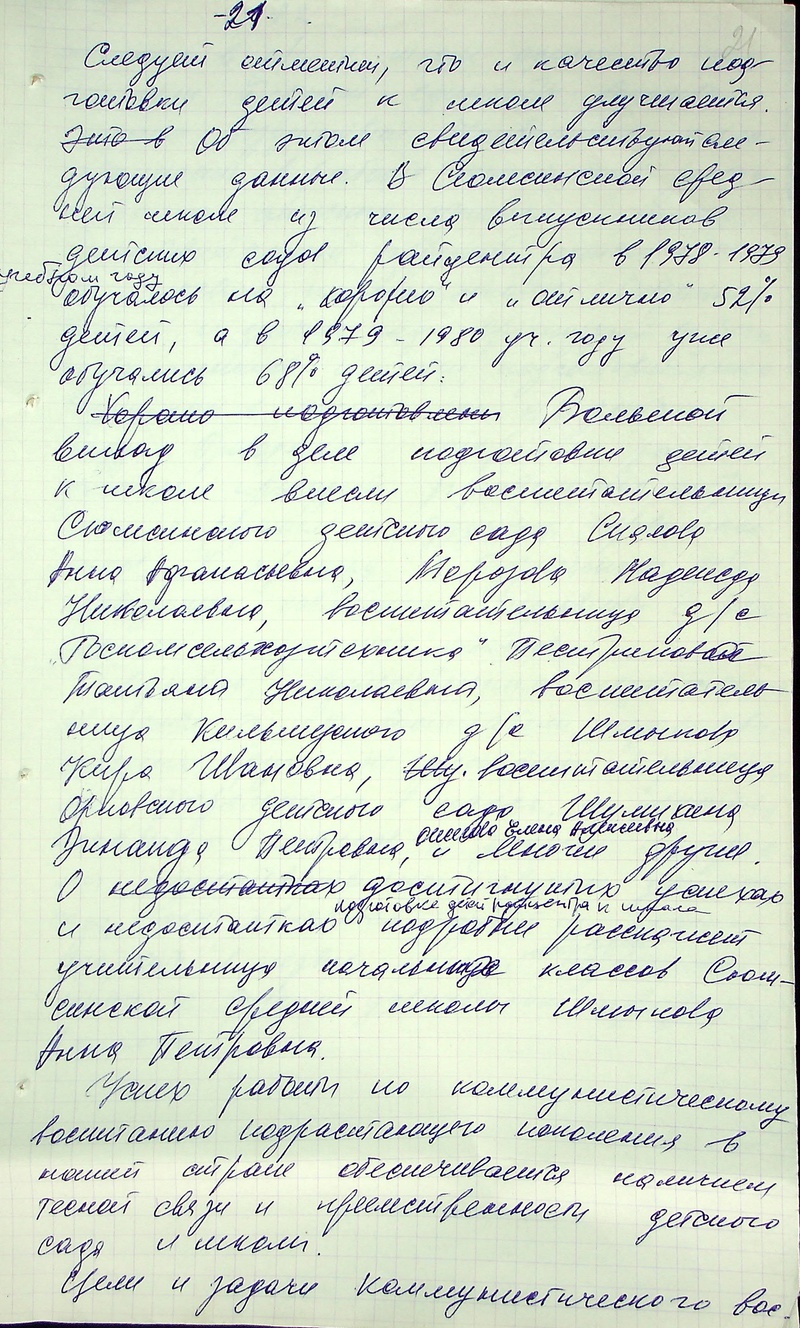 -21-
21
Следует отметить, что и качество под-
готовки детей к школе улучшается.
Это в Об этом свидетельствуют сле-
дующие данные. В Сюмсинской сред-
ней школе из числа выпускников
детских садов райцентра в 1978-1979
учебном году
обучалось на „хорошо" и „отлично" 52%
детей, а в 1979-1980 уч. году уже
обучались 68% детей.
Хорошо подготовлены Большой
вклад в деле подготовки детей
к школе внесли воспитательницы
Сюмсинского детского сада
Анна Афанасьевна, Морозова Надежда
Николаевна, воспитательница д/с
„Госкомсельхозтехника" Пестрикова
Татьяна Николаевна, воспитатель-
ница Кильмезского д/с Шмыкова
Кира Ивановна, воспитательница
Орловского детского сада Шумихина
Зинаида Петровна, и многие другие.
Елена Алексеевна
О недостатках достигнутых успехах
подготовке детей райцентра к школе
и недостатках подробнее расскажет
учительница начальных классов Сюм-
синской средней школы Шмыкова
Анна Петровна.
Успех работы по коммунистическому
воспитанию подрастающего поколения в
нашей стране обеспечивается наличием
тесной связи и преемственности детского
сада и школы.
Цели и задачи коммунистического вос-